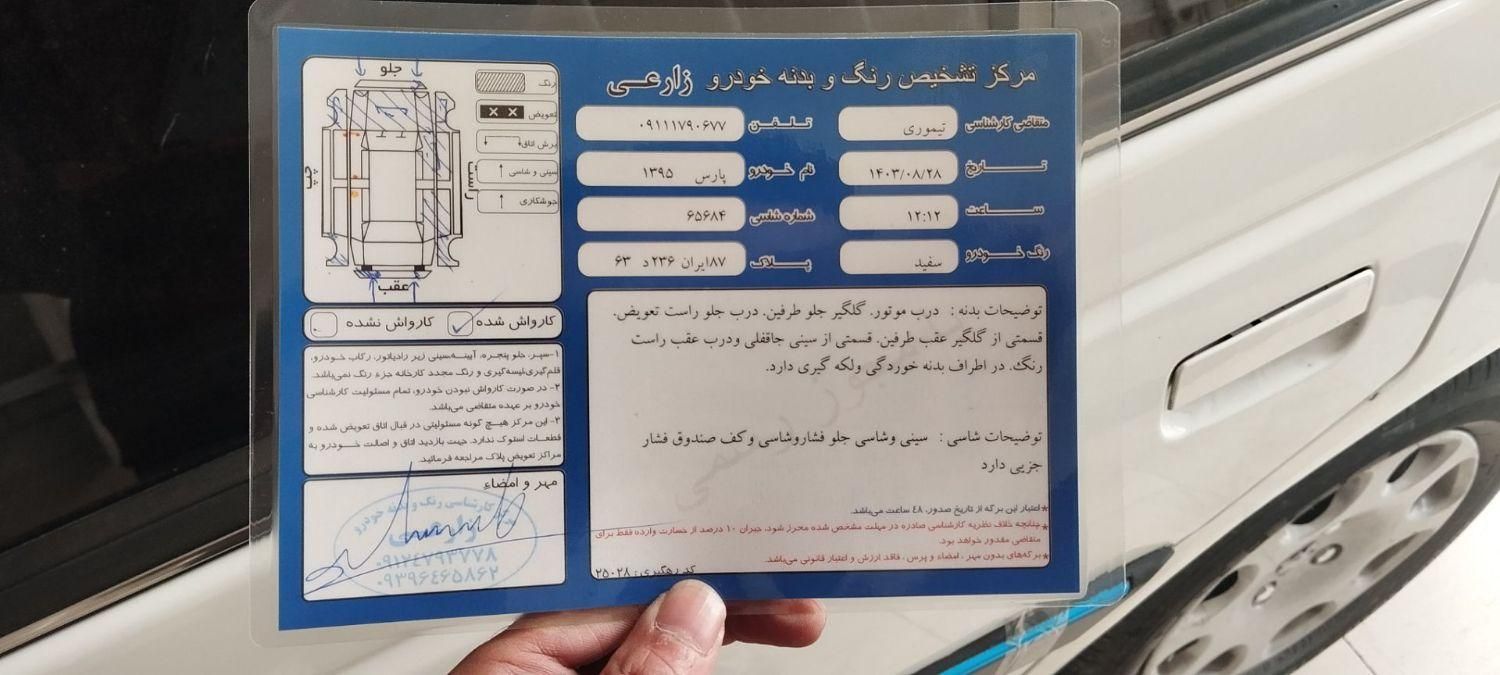 مرکز تشخیص رنگ و بدنه خودرو زارعی
متقاضی کارشناسی تیموری
تلفن ۰۹۱۱۱۷۹۰۶۷۷
تاریخ ۱۴۰۳/۰۸/۲۸
نام خودرو پارس ۱۳۹۵
ساعت ۱۲:۱۲
شماره شاسی ۶۵۶۸۴
رنگ خودرو سفید
پلاک ۸۷ایران ۲۳۶د ۶۳
توضیحات بدنه : درب موتور. گلگیر جلو طرفین. درب جلو راست تعویض.
قسمتی از گلگیر عقب طرفین. قسمتی از سینی جاقفلی ودرب عقب راست
رنگ. در اطراف بدنه خوردگی ولکه گیری دارد.
توضیحات شاسی : سینی وشاسی جلو فشاروشاسی وکف صندوق فشار
جزیی دارد
*اعتبار این برگه از تاریخ صدور، ٤٨ ساعت می‌باشد.
*چنانچه خلاف نظریه کارشناسی صادره در مهلت مشخص شده محرز شود، جبران ۱۰ درصد از خسارت وارده فقط برای
متقاضی مقدور خواهد بود.
*برگه‌های بدون مهر ، امضاء و پرس ، فاقد ارزش و اعتبار قانونی می‌باشد.
کد رهگیری: ۲۵۰۲۸
جلو
چپ
راست
عقب
رنگ
تعویض
برش اتاق
سینی و شاسی
جوشکاری
کارواش شده
کارواش نشده
۱-سپر، جلو پنجره، آیینه،سینی زیر رادیاتور، رکاب خودرو،
قلم‌گیری،لیسه‌گیری و رنگ مجدد کارخانه جزء رنگ نمی‌باشد.
۲- در صورت کارواش نبودن خودرو، تمام مسئولیت کارشناسی
خودرو بر عهده متقاضی می‌باشد.
۳- این مرکز هیچ گونه مسئولیتی در قبال اتاق تعویض شده و
قطعات استوک ندارد. جهت بازدید اتاق و اصالت خودرو به
مراکز تعویض پلاک مراجعه فرمائید.
مهر و امضاء
کارشناسی رنگ و بدنه خودرو
زارعی
۰۹۱۲۴۷۹۳۷۷۸
۰۹۳۹۶۴۶۵۸۶۲